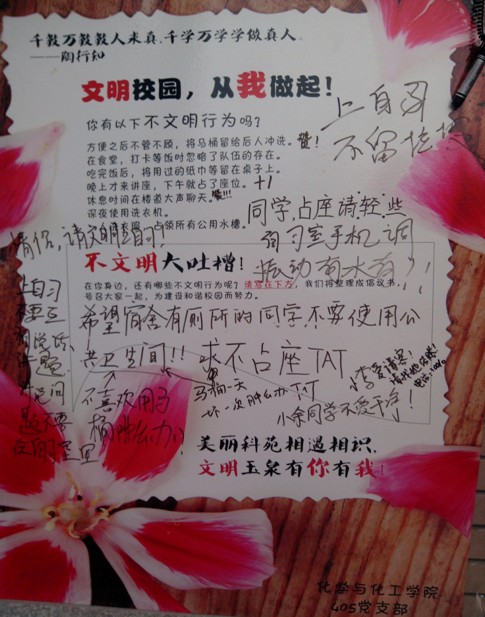 千教万教教人求真,千学万学学做真人。
——陶行知
文明校园，从我做起！
你有以下不文明行为吗？
方便之后不管不顾，将马桶留给后人冲洗。
在食堂，打卡等饭时忽略了队伍的存在。
吃完饭后，将用过的纸巾等留在桌子上。
晚上才来讲座，下午就占了座位。+1
休息时间在楼道大声聊天。
深夜使用洗衣机。
占领所有公用水槽。
上自习
不留垃圾
同学,占座请轻些
自习室手机调
振动有水有
情侣,请文明自习!
不文明大吐槽！
在你身边，还有哪些不文明行为呢？请写在下方，我们将整理成倡议书，
号召大家一起，为建设和谐校园而努力。
希望宿舍有厕所的同学不要使用公
共卫生间!!
求不占座TAT
不喜欢用马
桶肿么办!
马桶一天
小李爱请客!
小余同学不爱干净!
上自习
不要
美丽科苑相遇相识，
文明玉泉有你有我！
化学与化工学院
405党支部